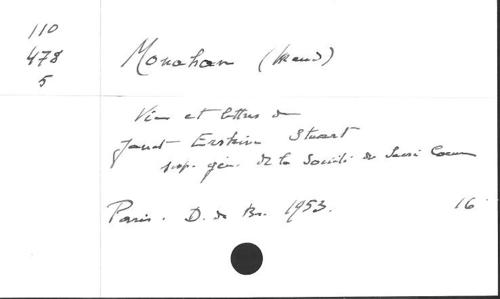 110
478
5
Monahan (Maud)
Vie et lettres de
Janet Erskine Stuart
sup. gén. de la Société du Sacré Coeur
Paris. D. de Br. 1953. 16°